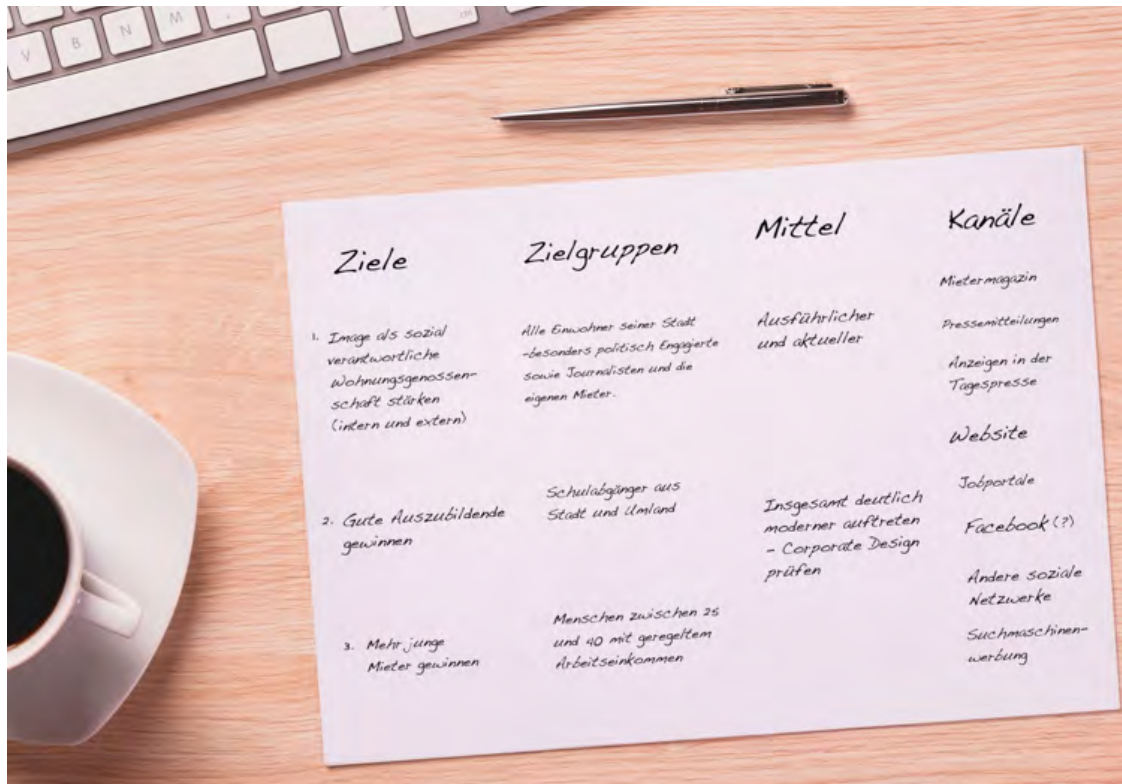 V B N M , . cm
Ziele
1. Image als sozial
verantwortliche
Wohnungsgenossen-
schaft stärken
(intern und extern)
2. Gute Auszubildende
gewinnen
3. Mehr junge
Mieter gewinnen
Zielgruppen
Alle Einwohner seiner Stadt
-besonders politisch Engagierte
sowie Journalisten und die
eigenen Mieter.
Schulabgänger aus
Stadt und Umland
Menschen zwischen 25
und 40 mit geregeltem
Arbeitseinkommen
Mittel
Ausführlicher
und aktueller
Insgesamt deutlich
moderner auftreten
- Corporate Design
prüfen
Kanäle
Mietermagazin
Pressemitteilungen
Anzeigen in der
Tagespresse
Website
Jobportale
Facebook (?)
Andere soziale
Netzwerke
Suchmaschinen-
werbung